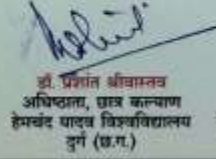 डॉ. प्रशांत श्रीवास्तव
अधिष्ठाता, छात्र कल्याण
हेमचंद यादव विश्वविद्यालय
दुर्ग (छ.ग.)